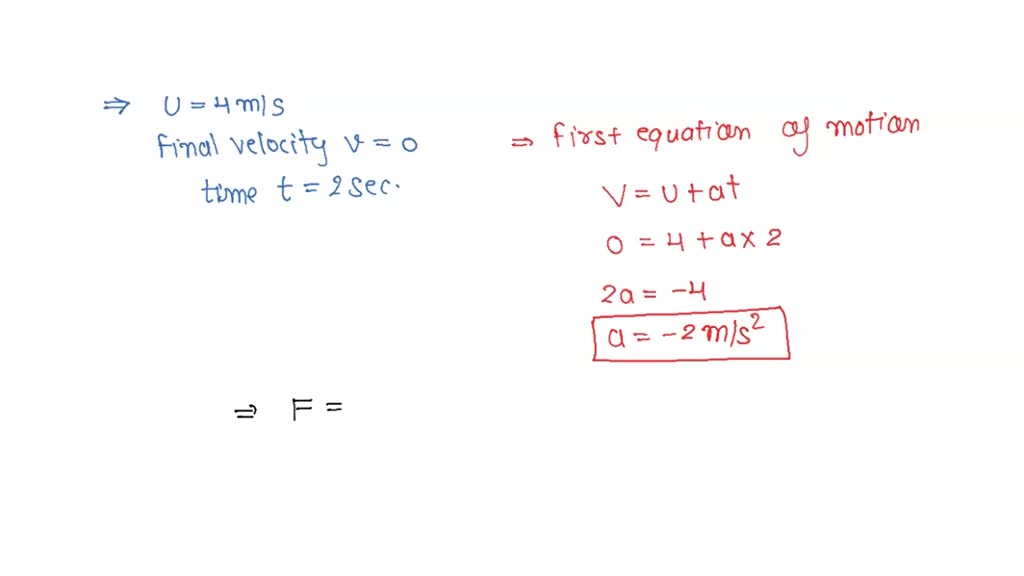 ⇒ U = 4 m/s
final velocity v = 0
time t = 2 sec.
⇒ first equation of motion
V = U + at
0 = 4 + a x 2
2a = -4
a = -2 m/s²
⇒ F =